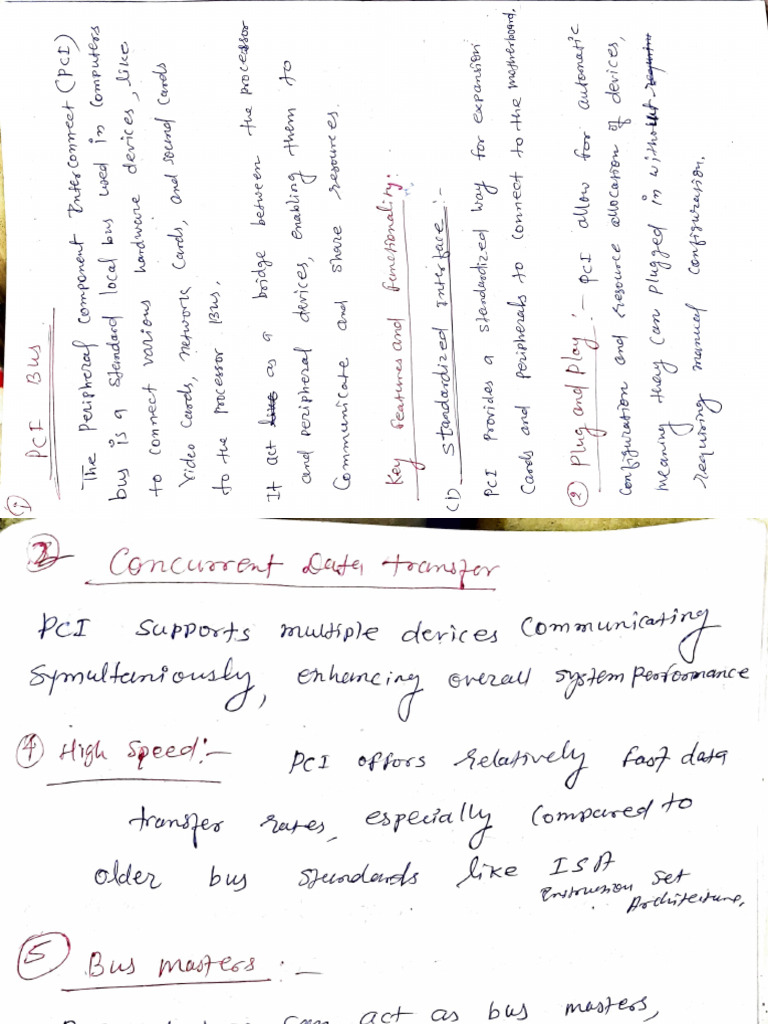 i) PCI Bus
The Peripheral Component Interconnect (PCI)
bus is a standard local bus used in computers
to connect various hardware devices, like
Video cards, network cards, and sound cards
to the processor Bus.
It act like as a bridge between the processor
and peripheral devices, enabling them to
Communicate and share resources.
Key features and functionality:
(1) Standardized interface :-
PCI Provides a standardized way for expansion
Cards and peripherals to connect to the motherboard.
② Plug and Play :- PCI allow for automatic
Configuration and resource allocation of devices,
meaning they can plugged in without requirin
requiring manual configuration.
3 Concurrent Data transfer
PCI supports multiple devices communicating
Symultaniously, enhancing overall system performance
④ High speed :- PCI offors relatively fast data
transfer rates, especially compared to
older bus standards like ISA
Instrusion Set
Architeture,
⑤ Bus masters :-
can act as bus masters,